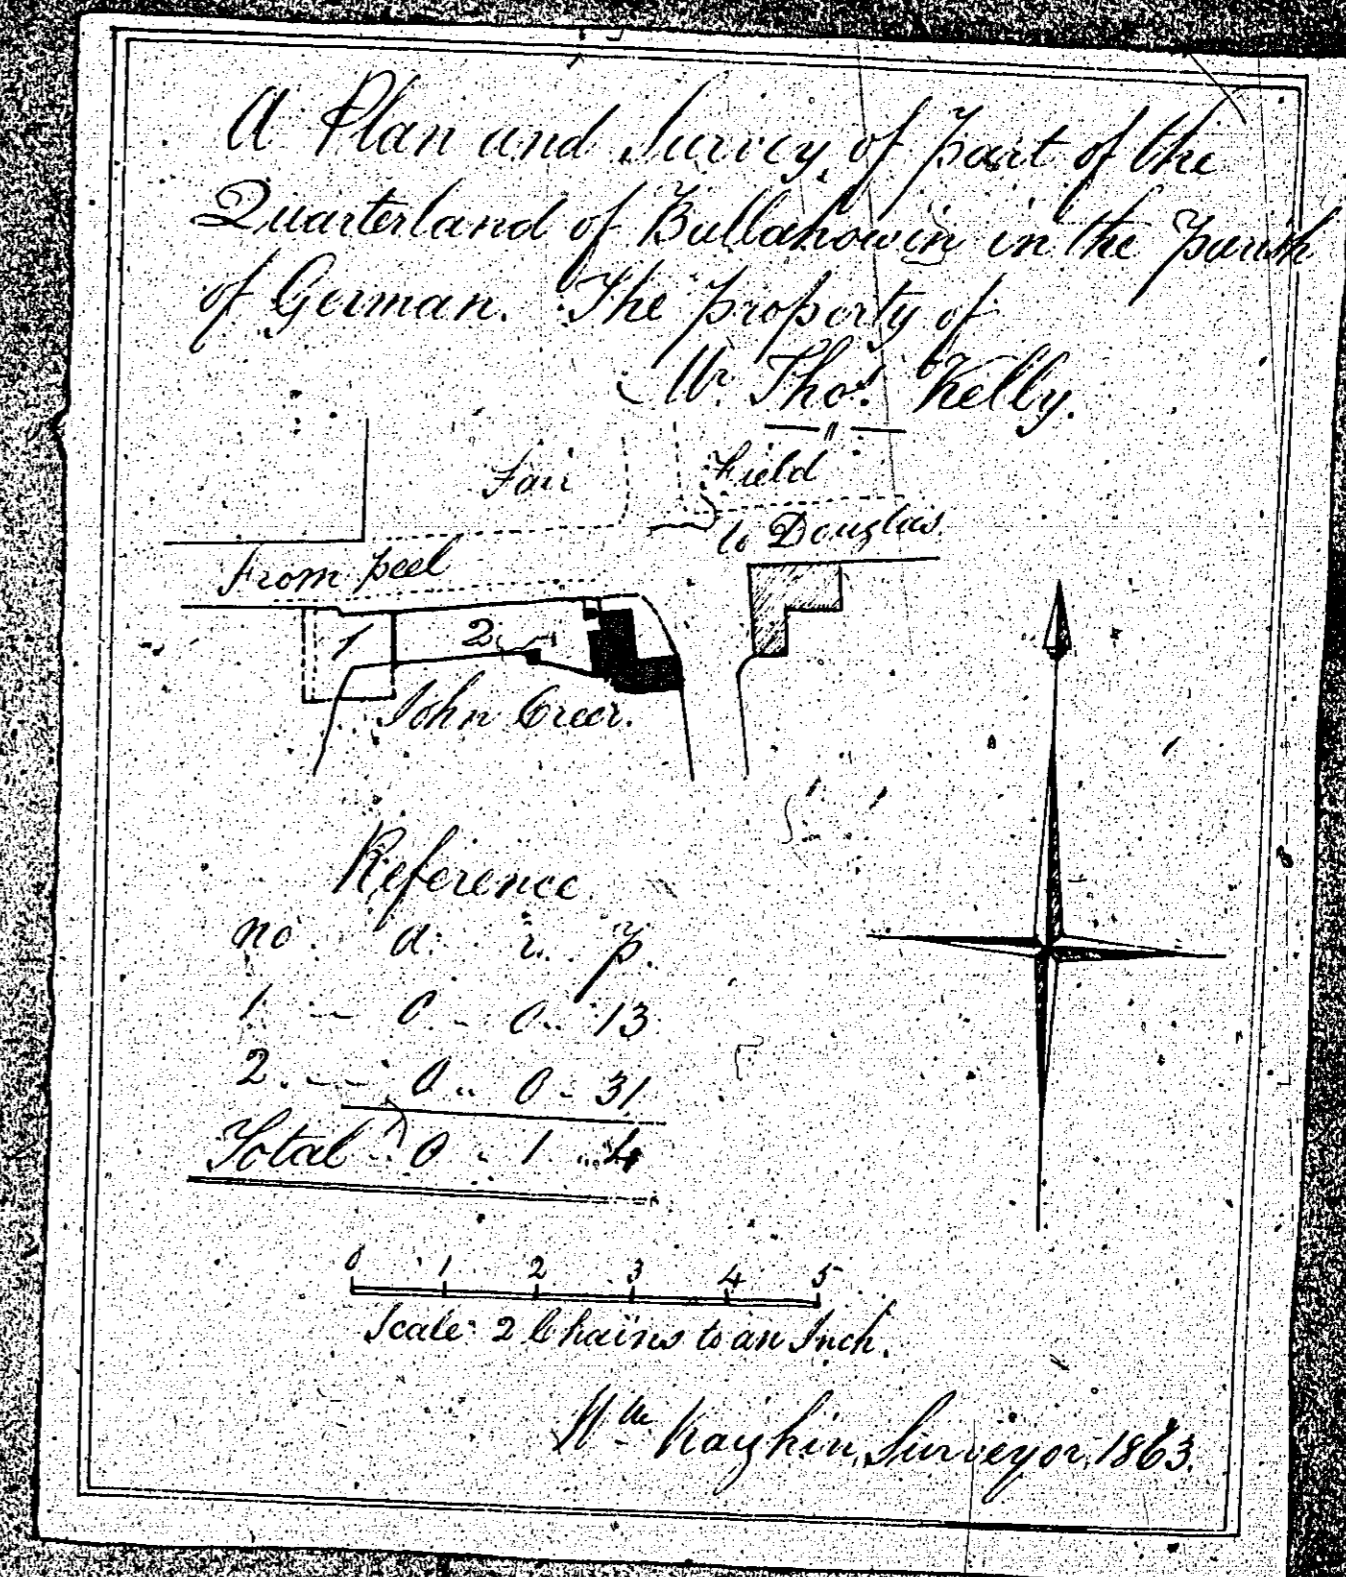 A Plan and Survey, of part of the
Quarterland of Ballahowin in the parish
of German. The property of
Mr. Thos. Kelly.
Fair Field
to Douglas.
From peel
1 2
John Creer.
Reference
no. a. r. p.
1 -- 0 - 0 .. 13
2. --- 0 .. 0 - 31
Total .. 0 . 1 .. 4
0 1 2 3 4 5
Scale: 2 Chains to an Inch.
Wm Kayhin, Surveyor, 1863.